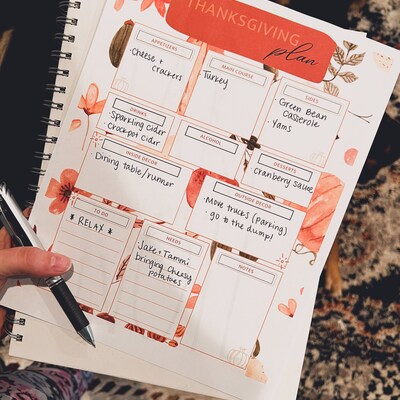 THANKSGIVING
plan
APPETIZERS
· Cheese +
crackers
MAIN COURSE
Turkey
SIDES
Green Bean
Casserole
· Yams
DRINKS
· Sparkling cider
Crockpot Cider
ALCOHOL
DESSERTS
Cranberry Sauce
INSIDE DECOR
Dining table/runner
OUTSIDE DECOR
· Move trucks (parking)
· go to the dump!
TO DO
* RELAX *
NEEDS
Jake + Tammi
bringing cheesy
potatoes
NOTES